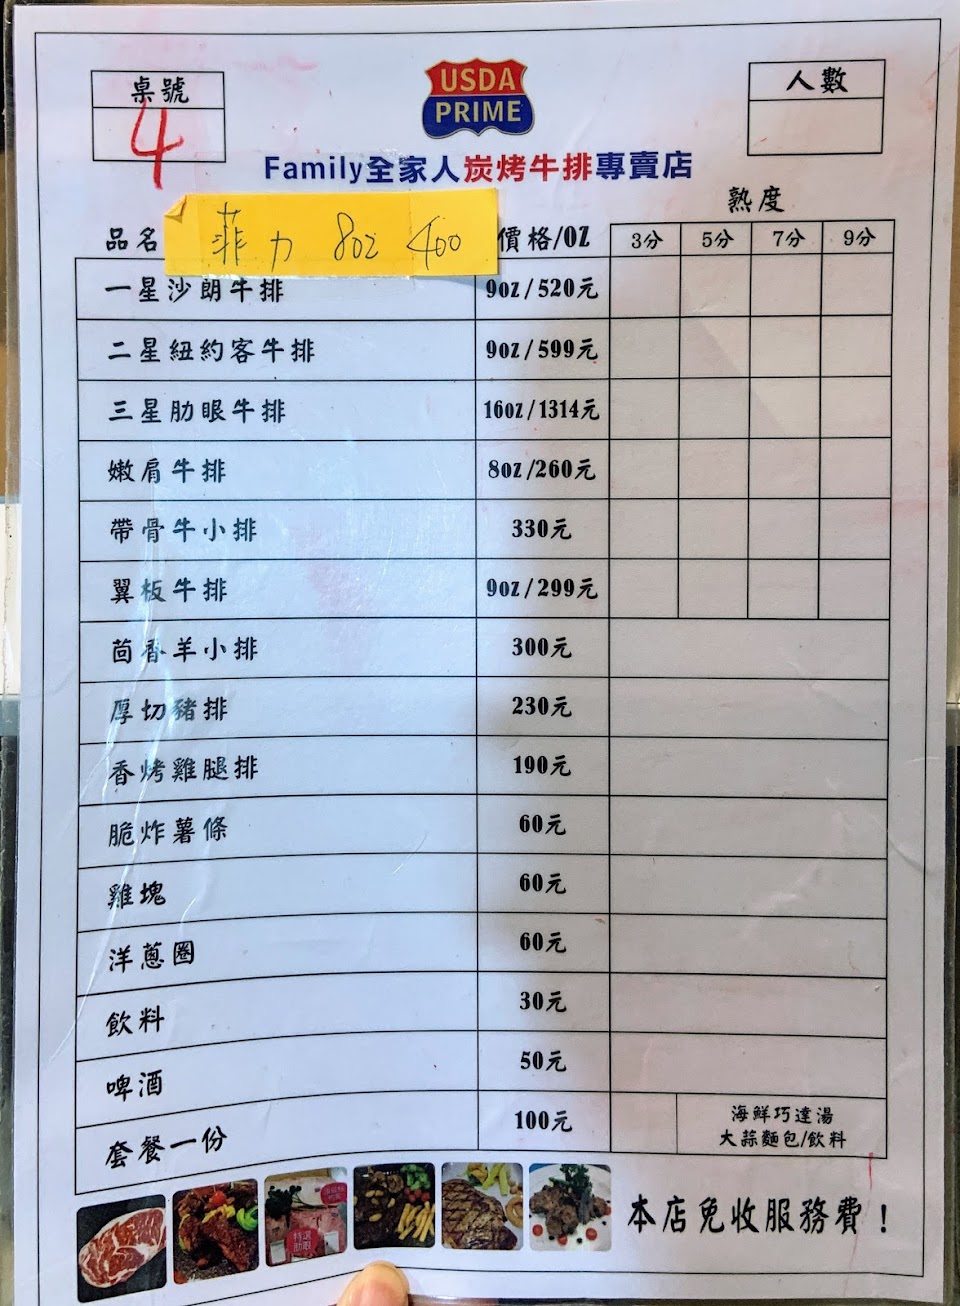 桌號
4
USDA
PRIME
人數
Family全家人炭烤牛排專賣店
熟度
品名 菲力 8oz 400 價格/OZ 3分 5分 7分 9分
一星沙朗牛排 9oz/520元
二星紐約客牛排 9oz/599元
三星肋眼牛排 16oz/1314元
嫩肩牛排 8oz/260元
帶骨牛小排 330元
翼板牛排 9oz/299元
茴香羊小排 300元
厚切豬排 230元
香烤雞腿排 190元
脆炸薯條 60元
雞塊 60元
洋蔥圈 60元
飲料 30元
啤酒 50元
套餐一份 100元 海鮮巧達湯
大蒜麵包/飲料
本店免收服務費！